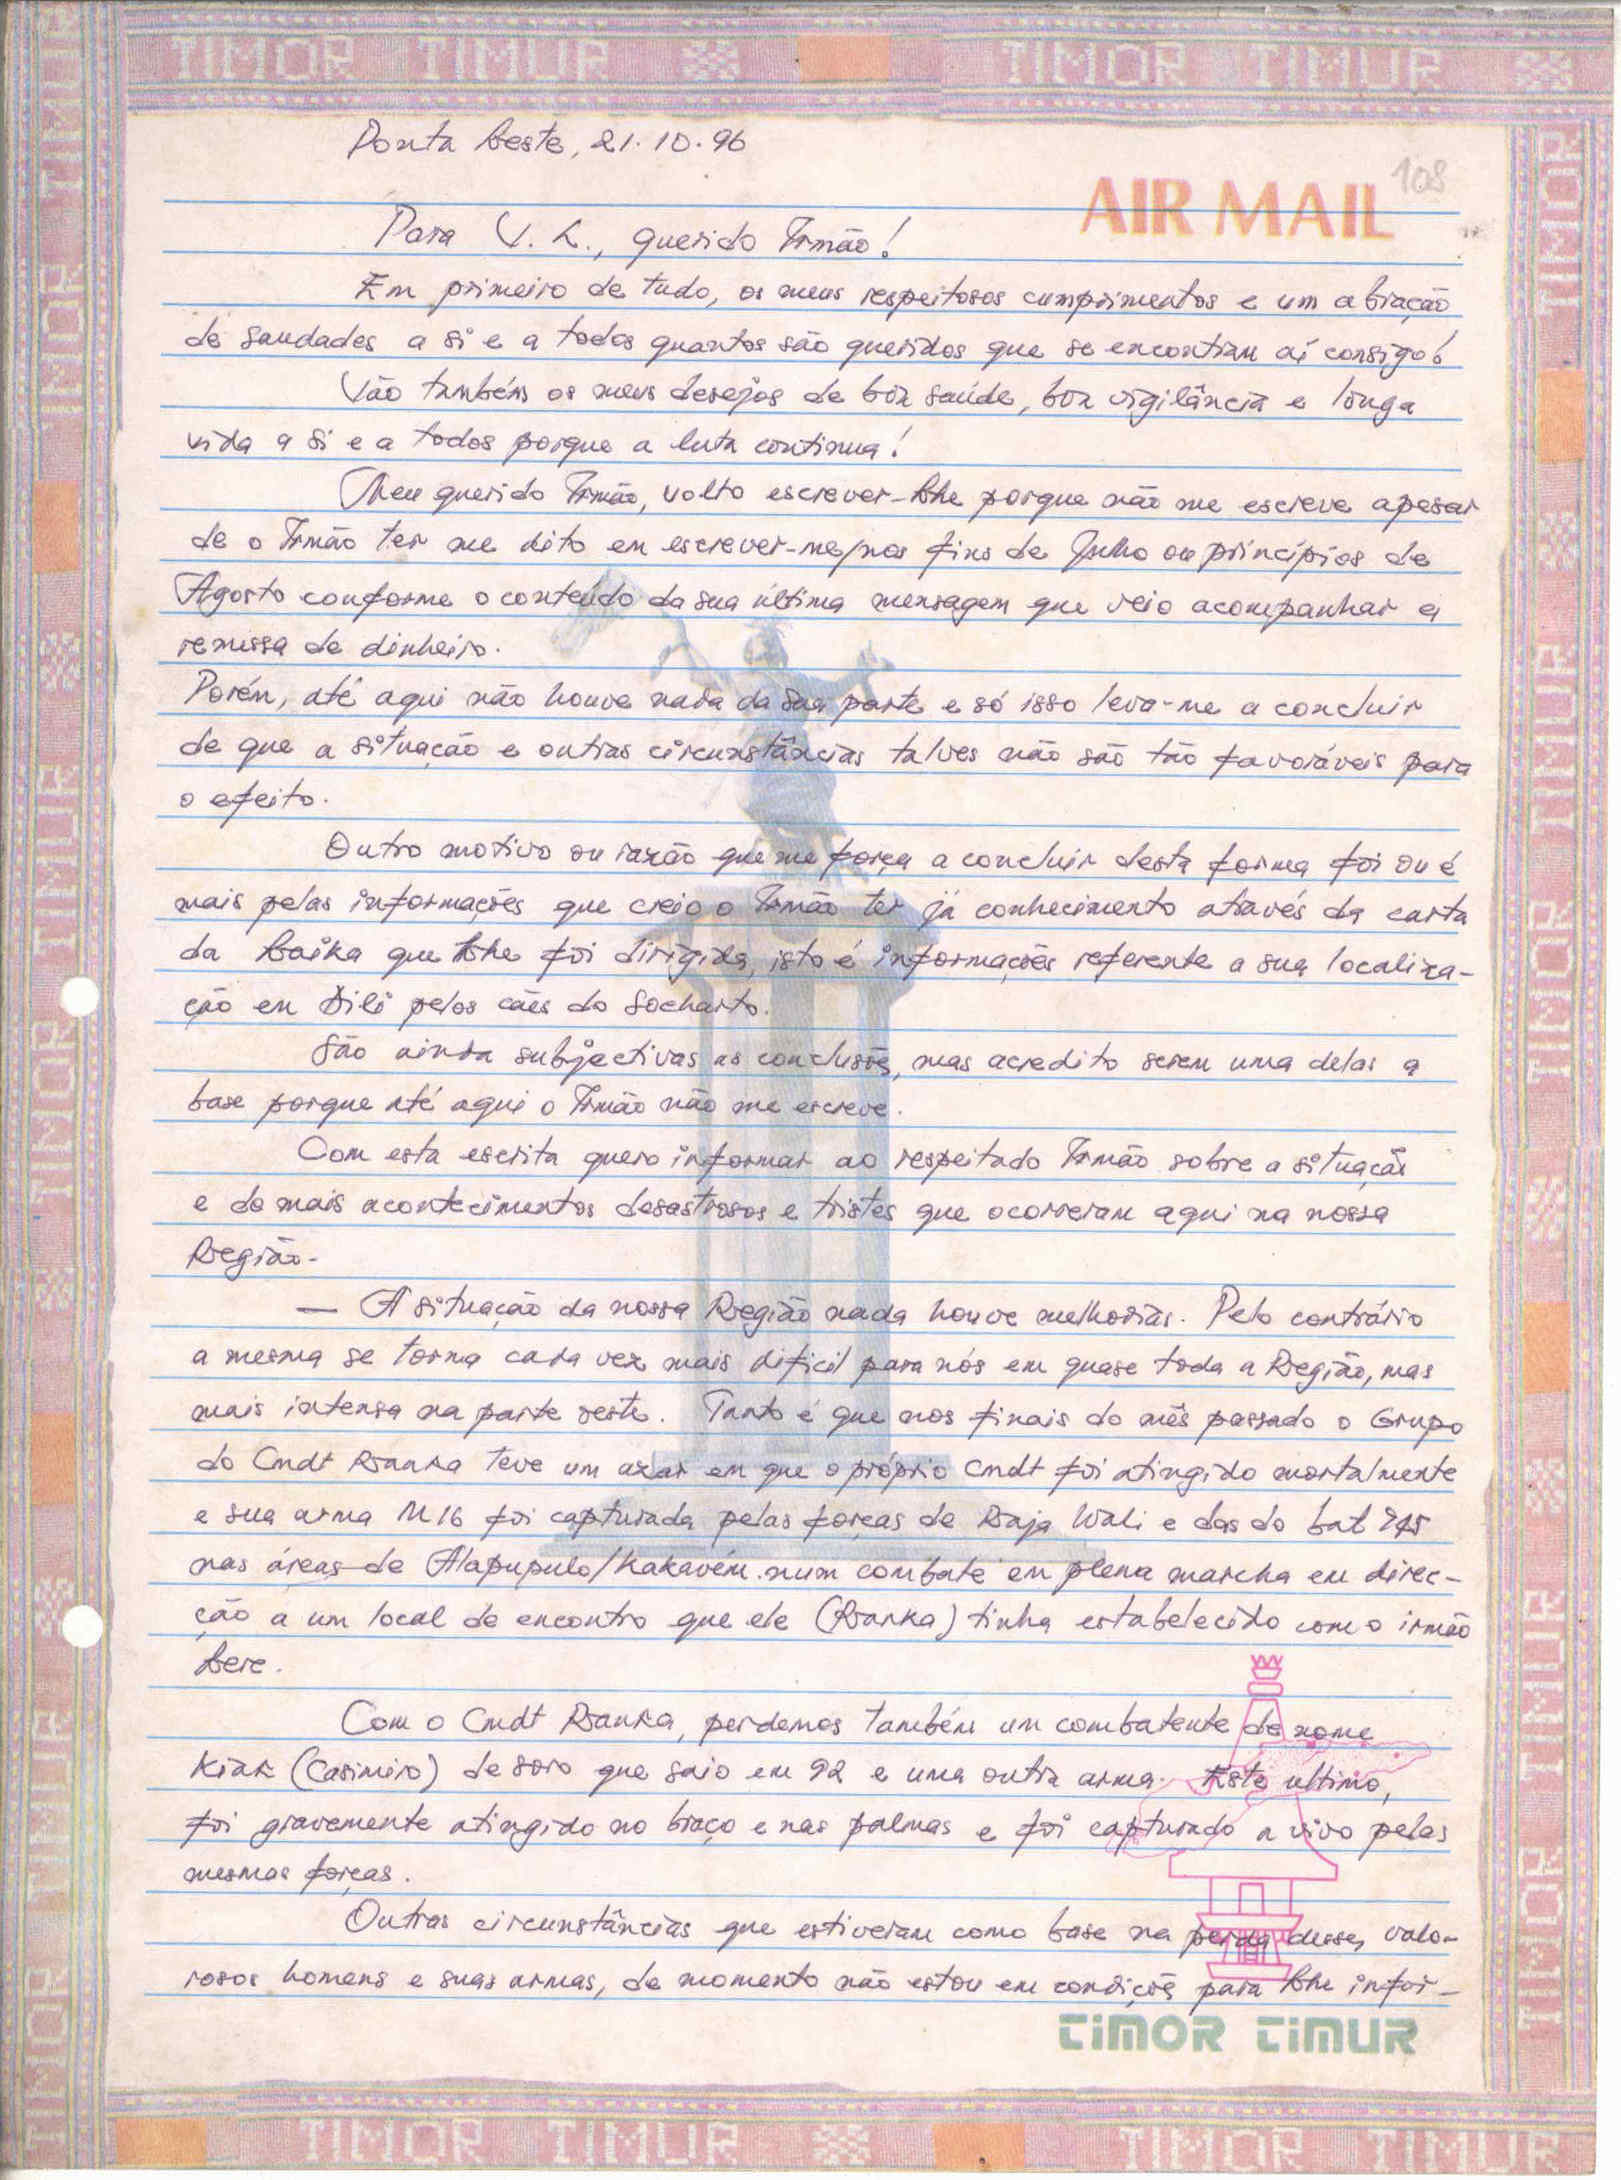 TIMOR TIMUR TIMOR TIMUR
Ponta Leste, 21.10.96
108
AIR MAIL
Para V. L., querido Irmão!
Em primeiro de tudo, os meus respeitosos cumprimentos e um abração
de saudades a si e a todos quantos são queridos que se encontram aí consigo!
Vão também os meus desejos de boa saúde, boa vigilância e longa
vida a si e a todos porque a luta continua!
Meu querido Irmão, volto escrever-lhe porque não me escreve apesar
de o Irmão ter me dito em escrever-me/nos fins de Julho ou princípios de
Agosto conforme o conteúdo da sua última mensagem que veio acompanhar a
remessa de dinheiro.
Porém, até aqui não houve nada da sua parte e só isso leva-me a concluir
de que a situação e outras circunstâncias talves não são tão favoráveis para
o efeito.
Outro motivo ou razão que me força a concluir desta forma foi ou é
mais pelas informações que creio o Irmão ter já conhecimento através da carta
da Laika que lhe foi dirigida, isto é informações referente a sua localiza-
ção em Dili pelos cães do Soeharto.
São ainda subjectivas as conclusões, mas acredito serem uma delas a
base porque até aqui o Irmão não me escreve.
Com esta escrita quero informar ao respeitado Irmão sobre a situação
e de mais acontecimentos desastrosos e tristes que ocorreram aqui na nossa
Região.
— A situação da nossa Região nada houve melhorias. Pelo contrário
a mesma se torna cada vez mais dificil para nós em quase toda a Região, mas
mais intensa na parte oeste. Tanto é que nos finais do mês passado o Grupo
do Cmdt Ranka teve um azar em que o próprio Cmdt foi atingido mortalmente
e sua arma M16 foi capturada pelas forças de Raja Wali e das do bat 745
nas áreas de Alapupulo/Kakavém num combate em plena marcha em direc-
ção a um local de encontro que ele (Ranka) tinha estabelecido com o irmão
Lere.
Com o Cmdt Ranka, perdemos também um combatente de nome
Kiak (Casimiro) de soro que saio em 92 e uma outra arma. Este ultimo,
foi gravemente atingido no braço e nas palmas e foi capturado a vivo pelas
mesmas forças.
Outras circunstâncias que estiveram como base na perda desses valo-
rosos homens e suas armas, de momento não estou em condições para lhe infor-
TIMOR TIMUR
TIMOR TIMUR TIMOR TIMUR